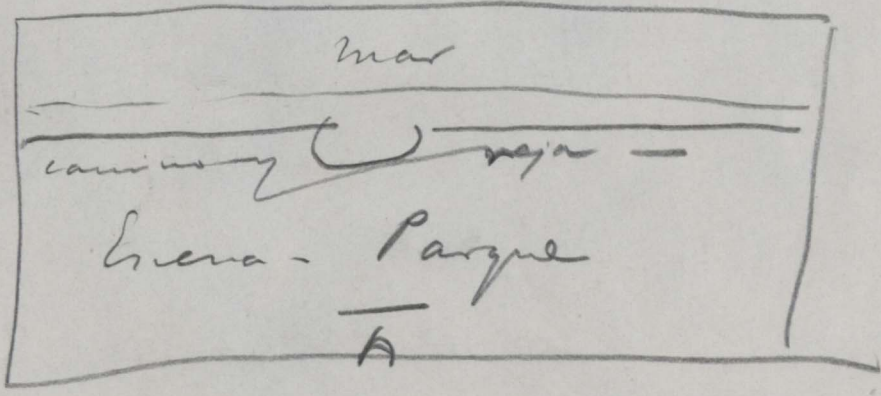 mar
camino y reja —
Escena - Parque
A